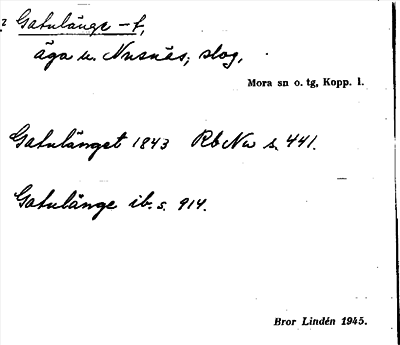 Gatulänge -t,
äga u. Nusnäs, skog,
Mora sn o. tg, Kopp. l.
Gatulänget 1843 Rb Nw s. 441.
Gatulänge ib. s. 914.
Bror Lindén 1945.